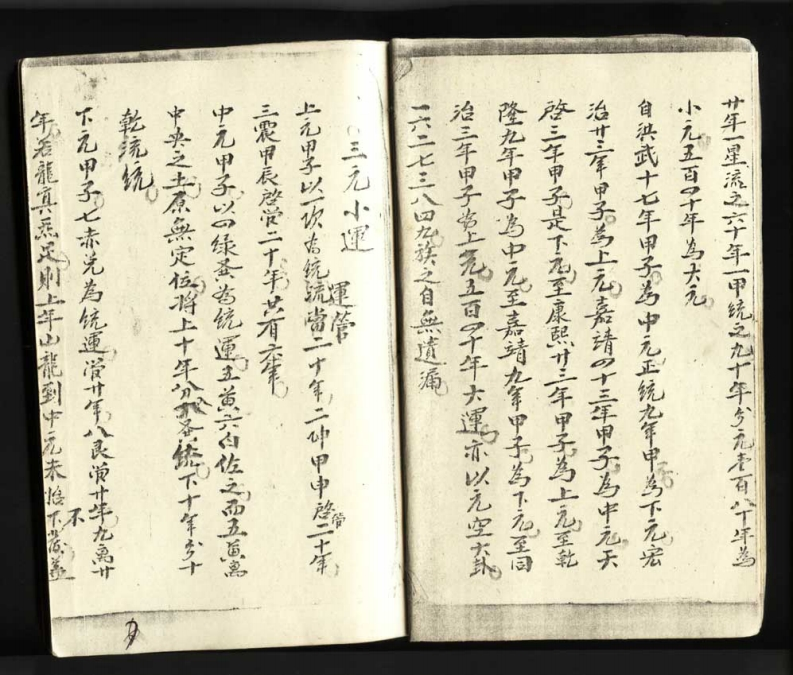 廿年一星流之六十年一甲統之九十年分元壹百八十年為
小元五百四十年為大元
自洪武十七年甲子為中元正統九年甲為下元宏
治廿三年甲子為上元嘉靖四十三年甲子為中元天
啓三年甲子是下元至康熙廿二年甲子為上元至乾
隆九年甲子為中元至嘉靖九年甲子為下元至同
治三年甲子為上元五百四十年大運亦以元空大卦
一六二七三八四九族之自無遺漏
三元小運
運管
上元甲子以一坎為統 當二十年二坤甲申啓管二十年
三震甲辰啓管二十年共有六十年
中元甲子以四綠 為統運五黃六白佐之而五黃為
中央之土原無定位將上十年分 統下十年分十
乾流統
下元甲子七赤兌為統運管廿年八艮 廿年九离廿
年若龍真 足則上年山龍到中元未 不下